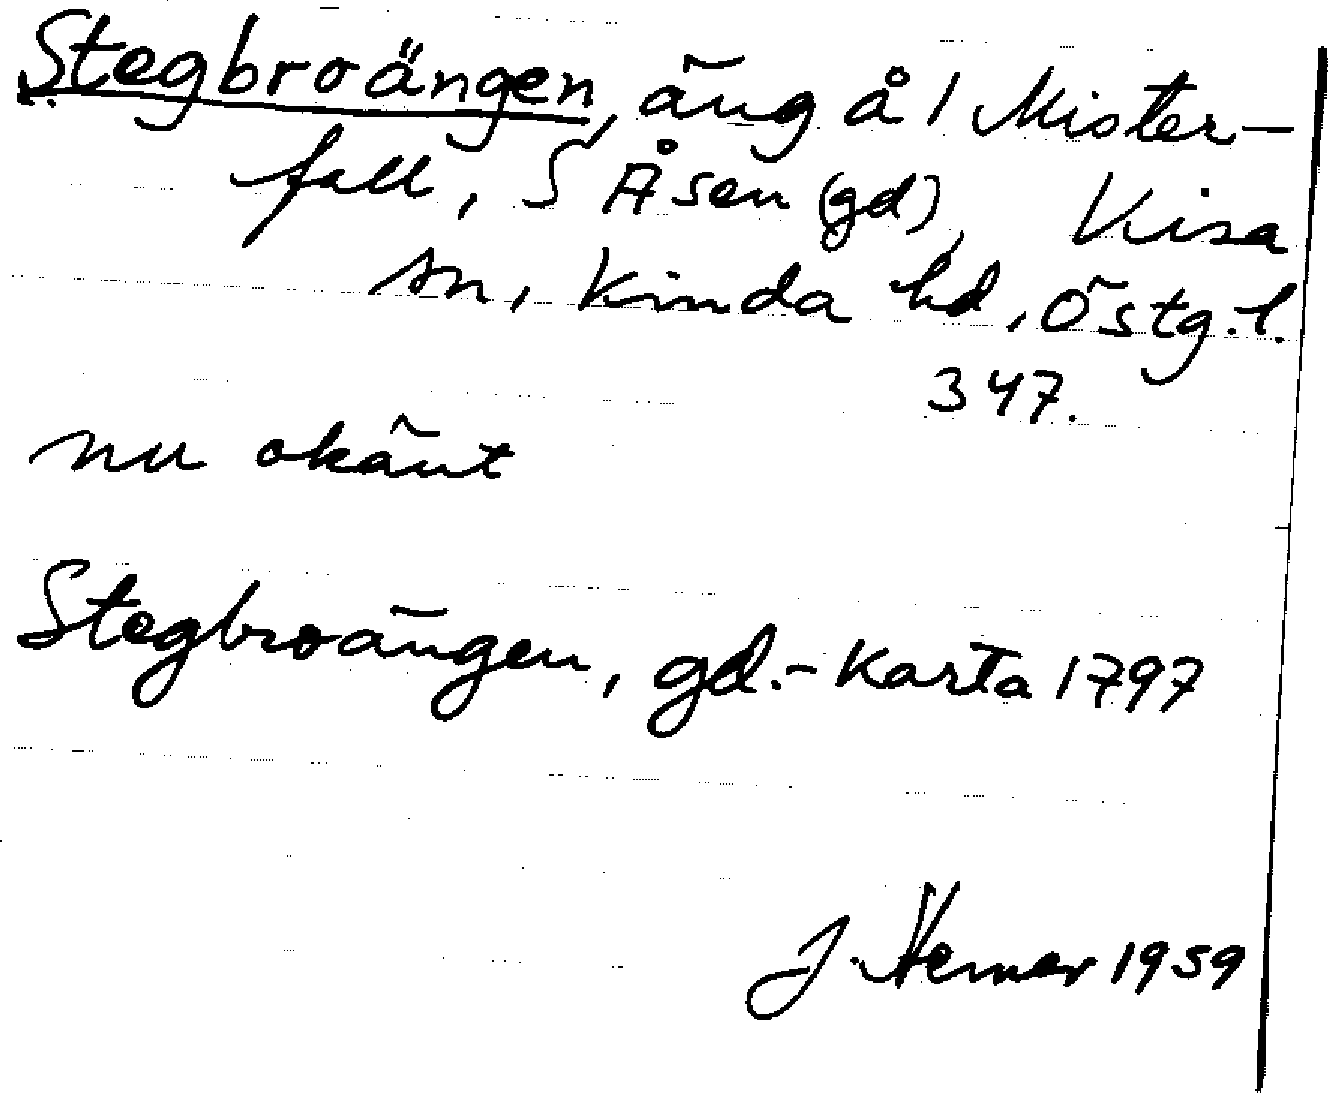 Stegbroängen, äng å 1 Mister-
fall, S Åsen (gd), Kisa
sn, Kinda hd, Östg. l.
347.
nu okänt
Stegbroängen, gd. - Karta 1797
J. 1959